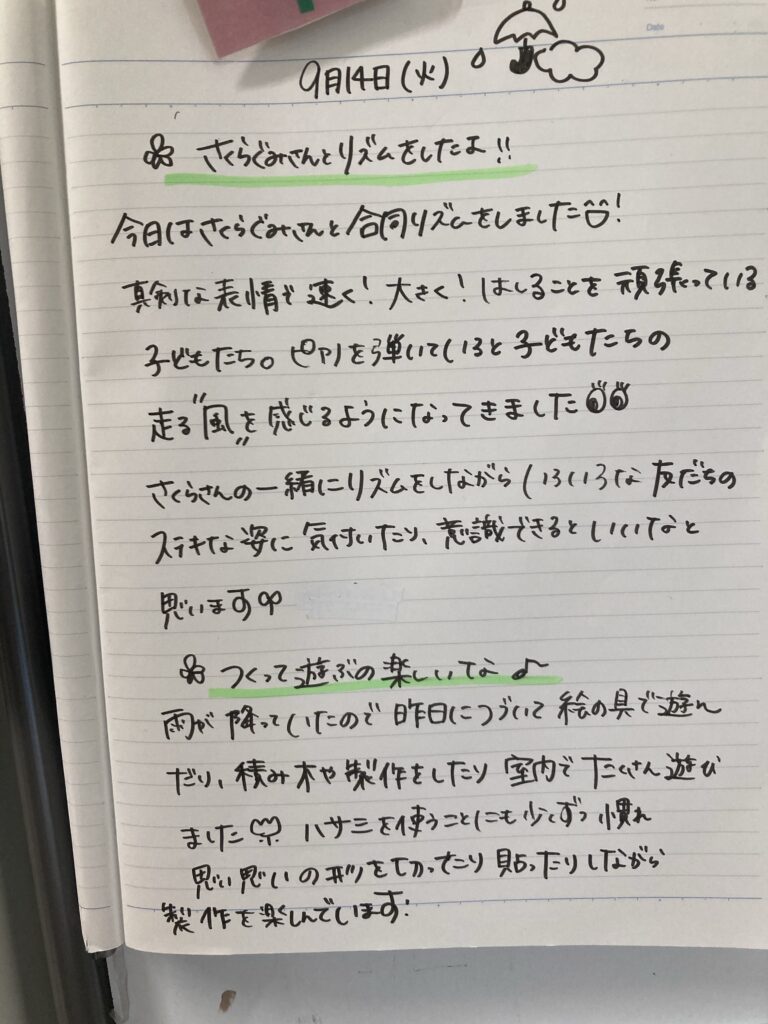 Date
9月14日(火)
さくらぐみさんとリズムをしたよ!!
今日はさくらぐみさんと合同リズムをしました!
真剣な表情で速く!大きく!はしることを頑張っている
子どもたち。ピアノを弾いていると子どもたちの
走る"風"を感じるようになってきました
さくらさんの一緒にリズムをしながらいろいろな友だちの
ステキな姿に気付いたり、意識できるといいなと
思います
つくって遊ぶの楽しいな♪
雨が降っていたので昨日につづいて絵の具で遊ん
だり、積み木や製作をしたり室内でたくさん遊び
ました ハサミを使うことにも少しずつ慣れ
思い思いの形を切ったり貼ったりしながら
製作を楽しんでいます!